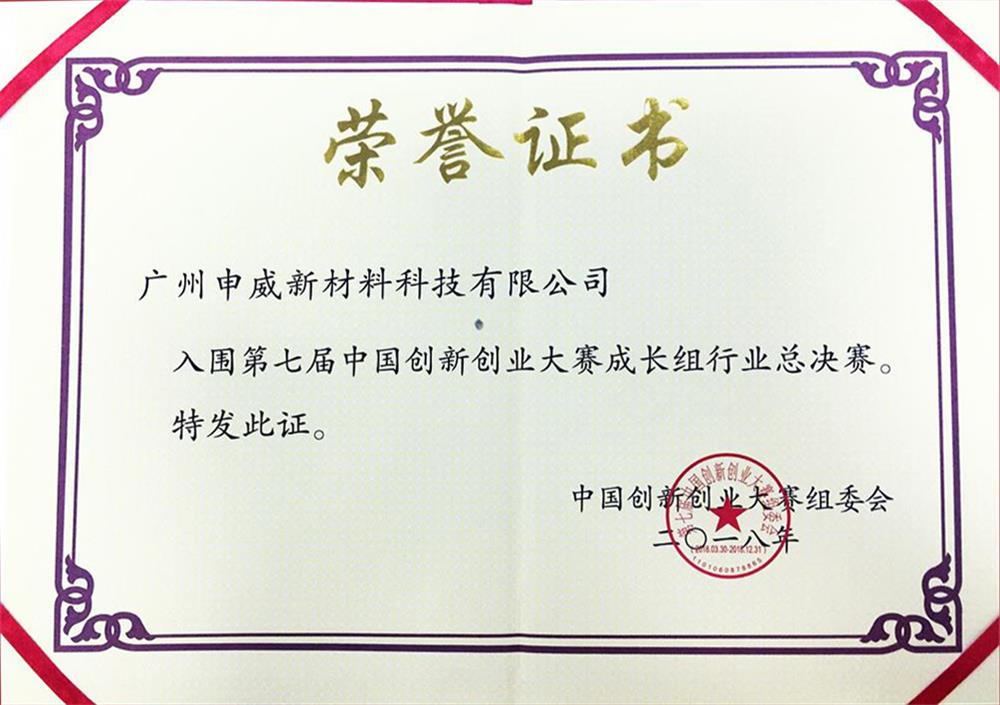 荣誉证书
广州申威新材料科技有限公司
入围第七届中国创新创业大赛成长组行业总决赛。
特发此证。
中国创新创业大赛组委会
二〇一八年
第七届中国创新创业大赛组委会
(2018.03.30-2018.12.31)